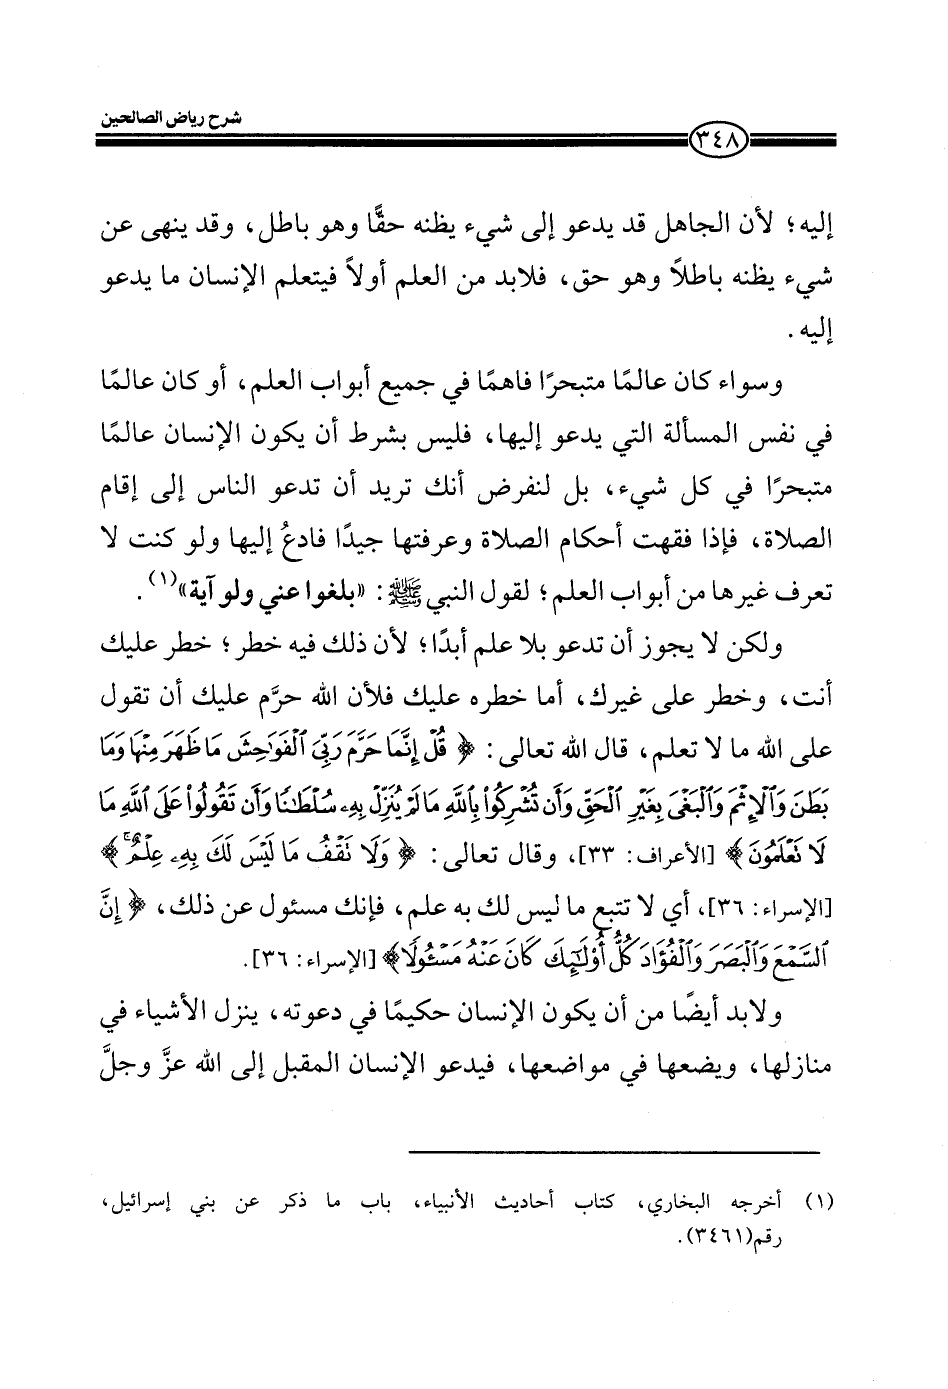 شرح رياض الصالحين
٣٤٨
إليه؛ لأن الجاهل قد يدعو إلى شيء يظنه حقًّا وهو باطل، وقد ينهى عن
شيء يظنه باطلاً وهو حق، فلابد من العلم أولاً فيتعلم الإنسان ما يدعو
إليه.
وسواء كان عالمًا متبحرًا فاهمًا في جميع أبواب العلم، أو كان عالمًا
في نفس المسألة التي يدعو إليها، فليس بشرط أن يكون الإنسان عالمًا
متبحرًا في كل شيء، بل لنفرض أنك تريد أن تدعو الناس إلى إقام
الصلاة، فإذا فقهت أحكام الصلاة وعرفتها جيدًا فادعُ إليها ولو كنت لا
تعرف غيرها من أبواب العلم؛ لقول النبي ﷺ: «بلغوا عني ولو آية»(١).
ولكن لا يجوز أن تدعو بلا علم أبدًا؛ لأن ذلك فيه خطر؛ خطر عليك
أنت، وخطر على غيرك، أما خطره عليك فلأن الله حرَّم عليك أن تقول
على الله ما لا تعلم، قال الله تعالى: ﴿ قُلْ إِنَّمَا حَرَّمَ رَبِّيَ ٱلْفَوَٰحِشَ مَا ظَهَرَ مِنْهَا وَمَا
بَطَنَ وَٱلْإِثْمَ وَٱلْبَغْىَ بِغَيْرِ ٱلْحَقِّ وَأَن تُشْرِكُوا۟ بِٱللَّهِ مَا لَمْ يُنَزِّلْ بِهِۦ سُلْطَٰنًا وَأَن تَقُولُوا۟ عَلَى ٱللَّهِ مَا
لَا تَعْلَمُونَ﴾ [الأعراف: ٣٣]، وقال تعالى: ﴿ وَلَا تَقْفُ مَا لَيْسَ لَكَ بِهِۦ عِلْمٌ ۚ﴾
[الإسراء: ٣٦]، أي لا تتبع ما ليس لك به علم، فإنك مسئول عن ذلك، ﴿ إِنَّ
ٱلسَّمْعَ وَٱلْبَصَرَ وَٱلْفُؤَادَ كُلُّ أُو۟لَٰٓئِكَ كَانَ عَنْهُ مَسْـُٔولًا﴾ [الإسراء: ٣٦].
ولابد أيضًا من أن يكون الإنسان حكيمًا في دعوته، ينزل الأشياء في
منازلها، ويضعها في مواضعها، فيدعو الإنسان المقبل إلى الله عزَّ وجلَّ
(١) أخرجه البخاري، كتاب أحاديث الأنبياء، باب ما ذكر عن بني إسرائيل،
رقم(٣٤٦١).